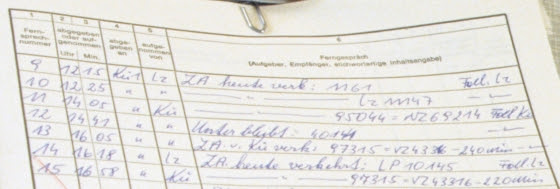 1 2 3 4 5 6
Fern-
sprech-
nummer
abgegeben
oder auf-
genommen
Uhr Min.
abge-
geben
an
aufge-
nommen
von
Ferngespräch
(Aufgeber, Empfänger, stichwortartige Inhaltsangabe)
9 12 15 Kü 1 Lz ZA heute verk: 1161 Fdl. Lz
10 12 25 " " — " — Lz 11147
11 14 05 " Kü — " — 95044 = NZ 69214 Fdl Kü
12 14 41 " " Unterbleibt: 40141
13 16 05 " " ZA v. Kü verk: 97315 = VZ 43316 - 240 min —
14 16 18 " Lz ZA heute verkehrt: LP 10145 Fdl. Lz
15 16 58 " Kü — " — 97315 = VZ 43358 - 220 min